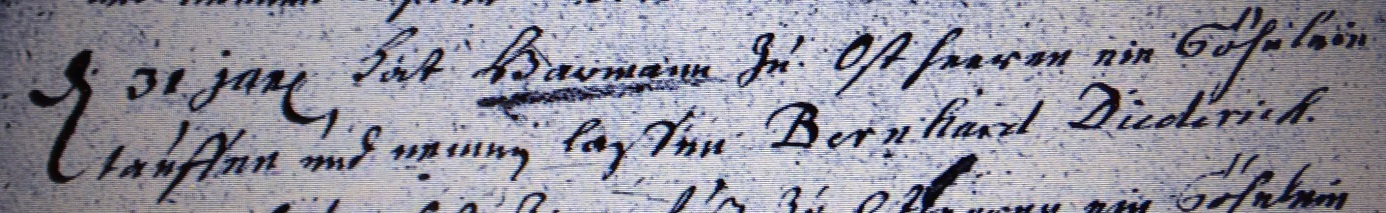 d 31 jan hat Barmann zu Ostheeren ein Söhnlein
tauffen und nennen lassen Bernhard Diederich.
zu Ostheeren ein Söhnlein